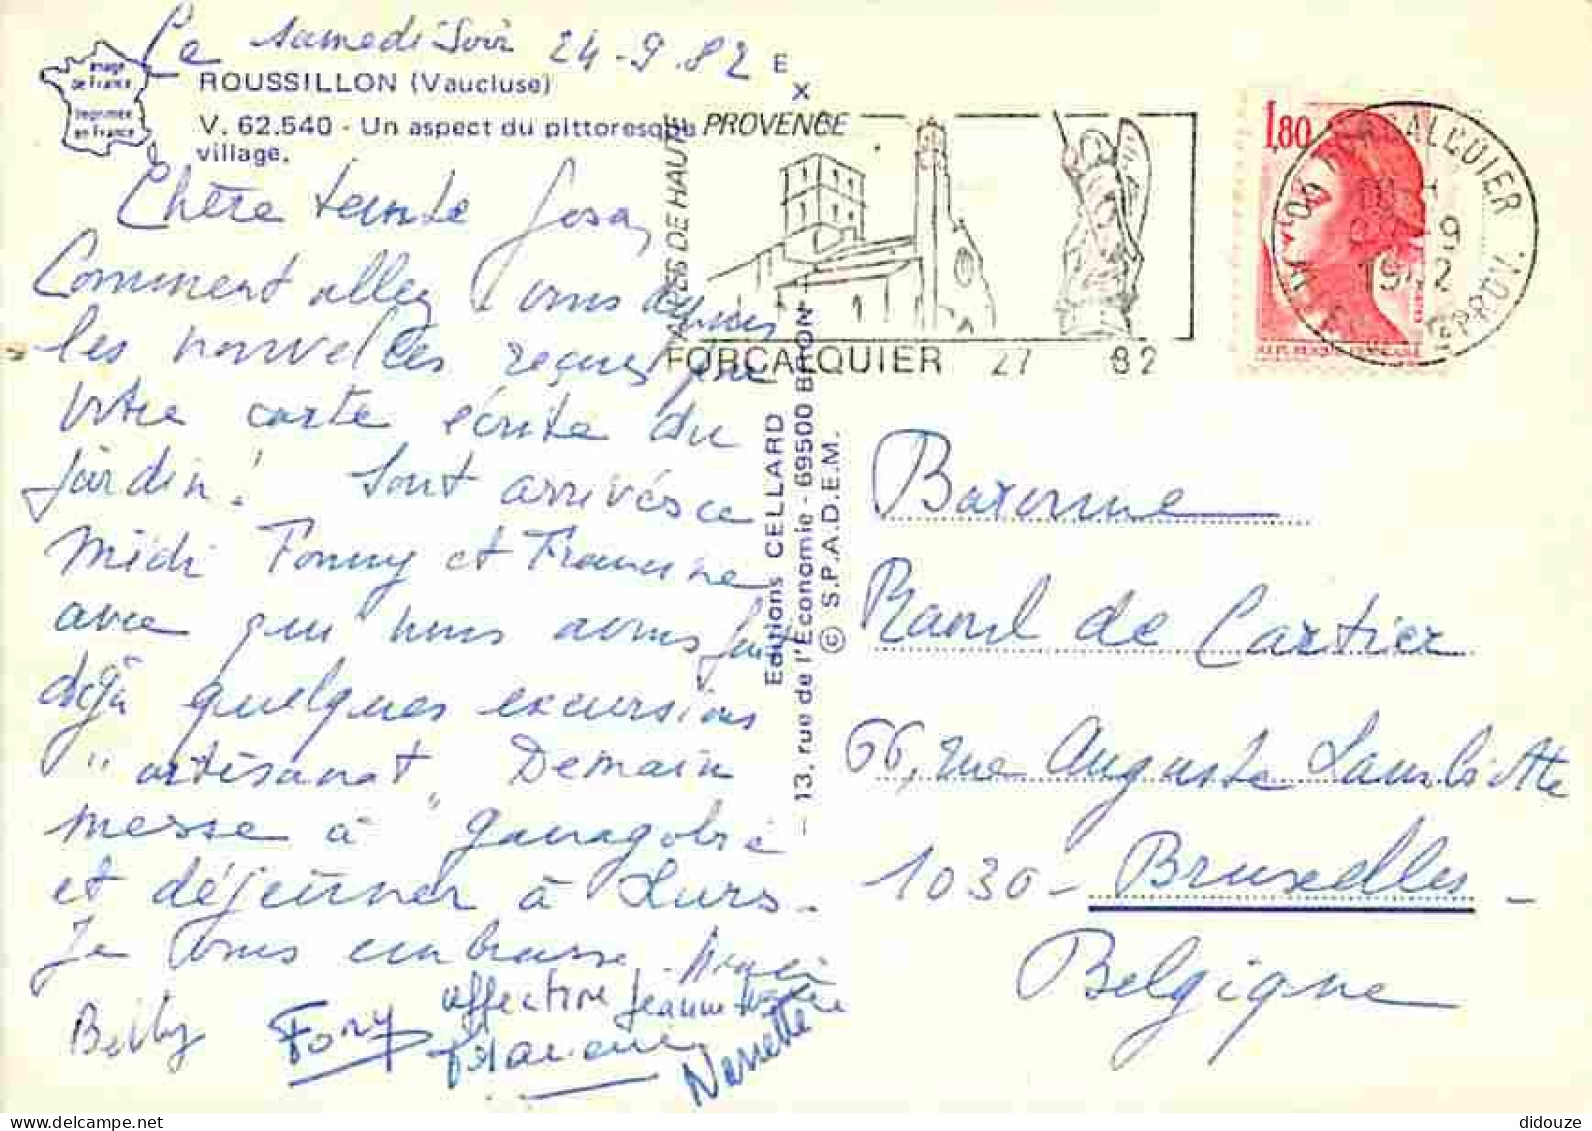 Le samedi soir 24-9.82
Image
de France
Imprimée
en France
ROUSSILLON (Vaucluse)
V. 62.540 - Un aspect du pittoresque
village.
E
X
ALPES DE HAUTE PROVENCE
FORCALQUIER 27 82
1,80
FORCALQUIER
9
19 2
Chère tante Josa,
Comment allez vous depuis
les nouvelles reçues par
votre carte écrite du
jardin! Sont arrivés ce
midi Fonny et Francine
avec qui nous avons fait
déjà quelques excursions
"artisanat. Demain
messe à "Ganagobie
et déjeûner à Lurs.
Je vous embrasse.
affection Jeannette
Betty Fony Francine Nenette
Editions CELLARD
- 13, rue de l'Economie - 69500 BRON
© S.P.A.D.E.M.
Baronne
Raoul de Cartier
66, rue Auguste Lambiotte
1030 - Bruxelles -
Belgique
www.delcampe.net
didouze